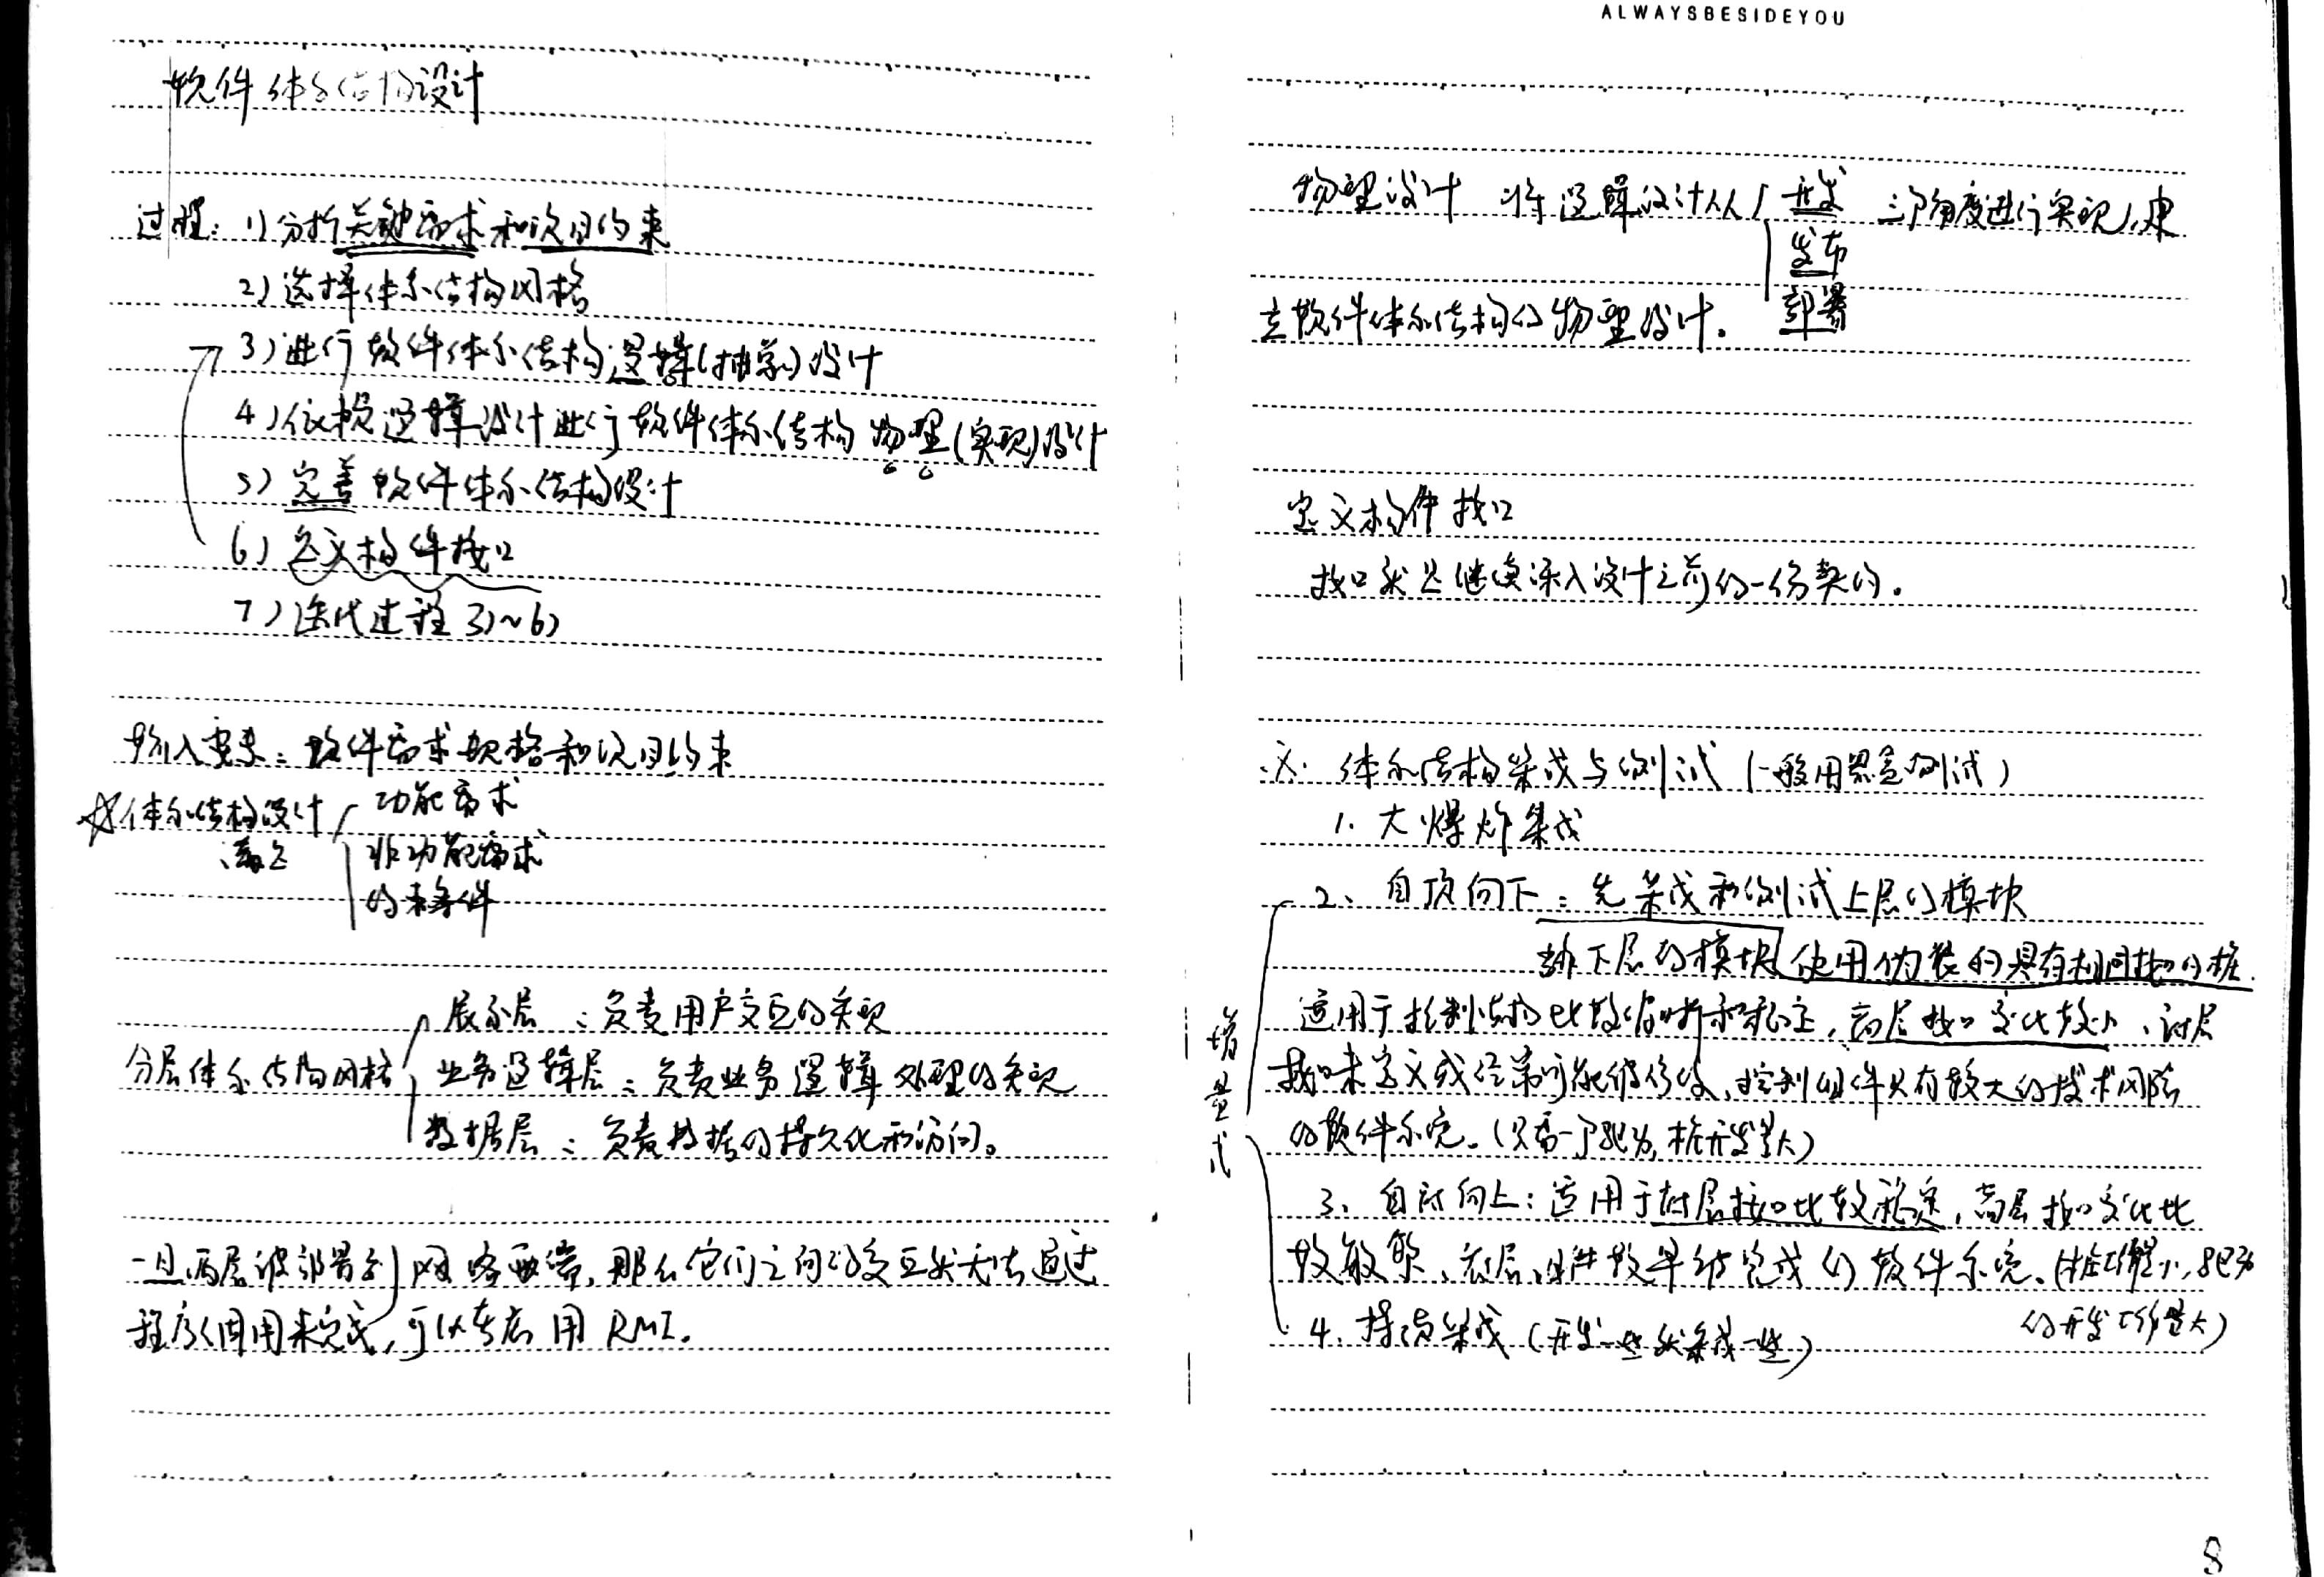 软件体系结构设计
过程：1）分析关键需求和项目约束
2）选择体系结构风格
3）进行软件体系结构逻辑（抽象）设计
4）依赖逻辑设计进行软件体系结构物理（实现）设计
5）完善软件体系结构设计
6）定义构件接口
7）迭代过程 3）~6）
输入要素：软件需求规格和项目约束
☆体系结构设计
功能需求
非功能需求
约束条件
展示层：负责用户交互的实现
分层体系结构风格
业务逻辑层：负责业务逻辑处理的实现
数据层：负责数据的持久化和访问。
一旦两层被部署到网络两端，那么它们之间的交互就无法通过
程序调用来完成，可以考虑用 RMI。
ALWAYSBESIDEYOU
物理设计 将逻辑设计从 开发 三个角度进行实现，建
发布
部署
立软件体系结构的物理设计。
定义构件接口
接口就是继续深入设计之前的一份契约。
体系结构集成与测试（一般用黑盒测试）
1. 大爆炸集成
2、自顶向下：先集成和测试上层的模块
下层的模块使用伪装的具有相同接口的桩.
适用于控制结构比较清晰和稳定，高层接口变化较小、底层
接口未定义或经常可能被修改、控制组件具有较大的技术风险
的软件系统。（只需一个驱动，桩开发量大）
增量式
3、自底向上：适用于底层接口比较稳定，高层接口变化比
较频繁、底层组件较早被完成的软件系统。（桩工作量小，驱动
的开发工作量大）
4、持续集成（开发一些就集成一些）
8